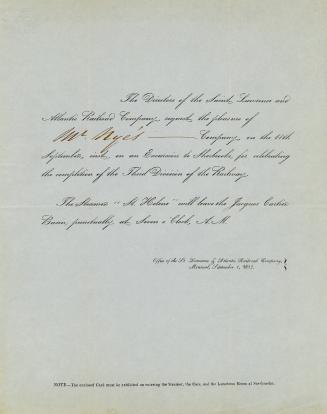 The Directors of the Saint Lawrence and
Atlantic Railroad Company request the pleasure of
Mr. Nye's Company on the 11th
September, inst. on an Excursion to Sherbrooke, for celebrating
the completion of the Third Division of the Railway.
The Steamer "St. Helens" will leave the Jacques Cartier
Basin, punctually at Seven o'Clock, A.M.
Office of the St. Lawrence & Atlantic Railroad Company,
Montreal, September 1, 1852.
NOTE.—The enclosed Card must be exhibited on entering the Steamer, the Cars, and the Luncheon Room at Sherbrooke.